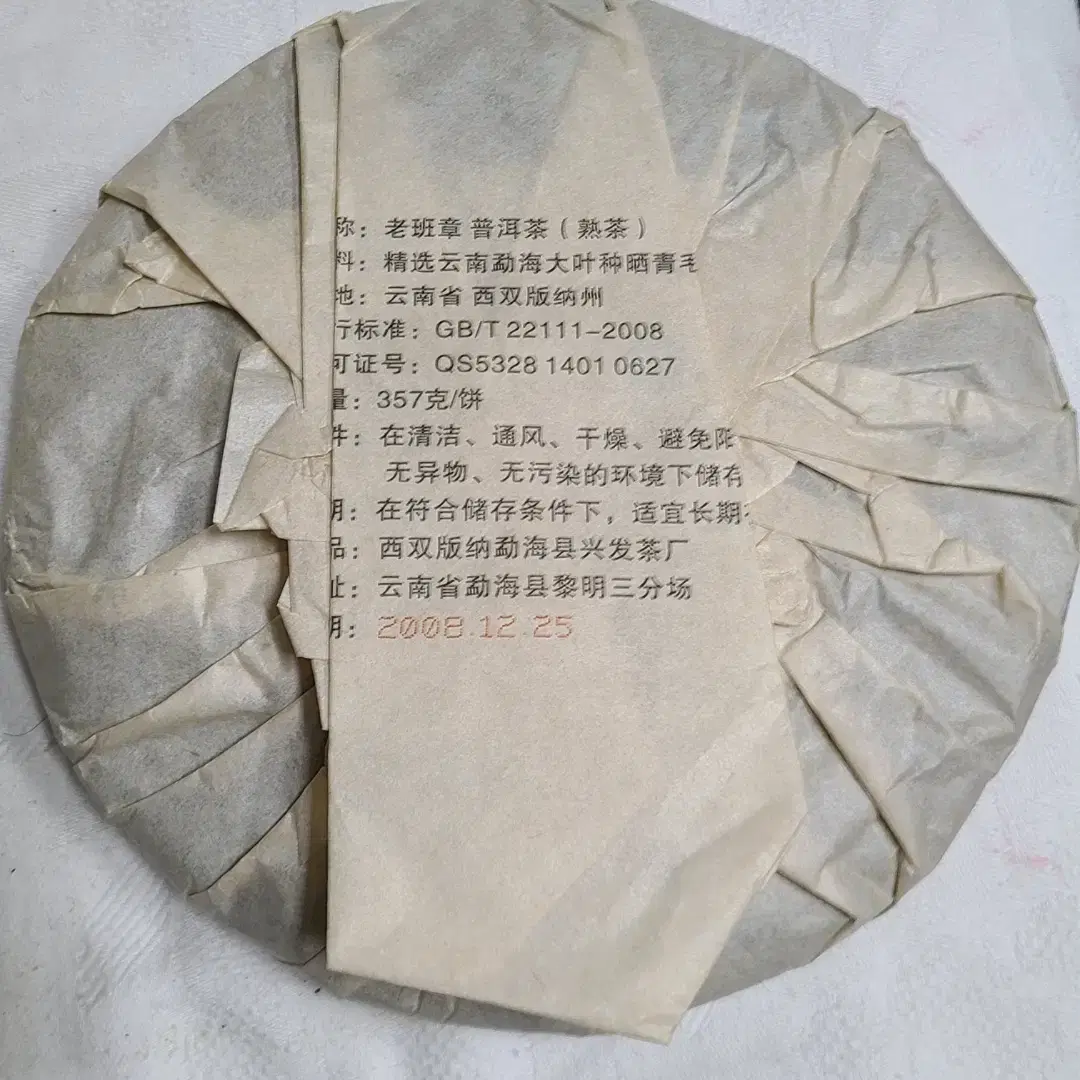 称：老班章 普洱茶（熟茶）
料：精选云南勐海大叶种晒青毛
地：云南省 西双版纳州
行标准：GB/T 22111-2008
可证号：QS5328 1401 0627
量：357克/饼
件：在清洁、通风、干燥、避免阳
无异物、无污染的环境下储存
期：在符合储存条件下，适宜长期
品：西双版纳勐海县兴发茶厂
址：云南省勐海县黎明三分场
期：2008.12.25